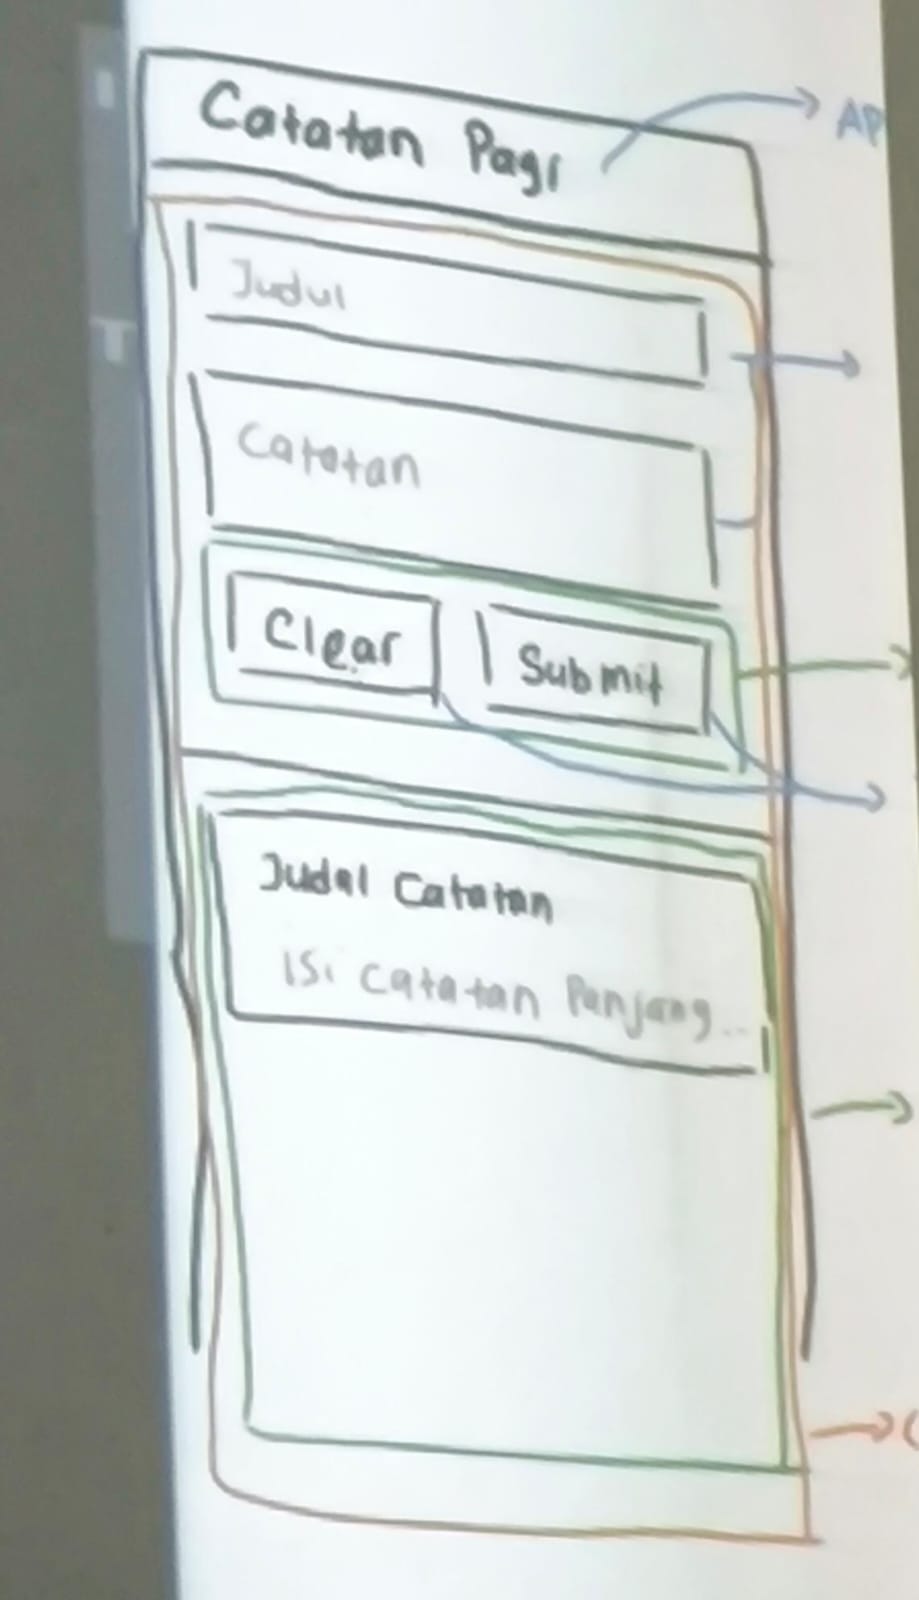 Catatan Pagi
AP
Judul
Catatan
Clear
Submit
Judul Catatan
Isi Catatan Panjang...